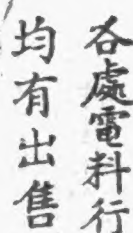 各處電料行
均有出售